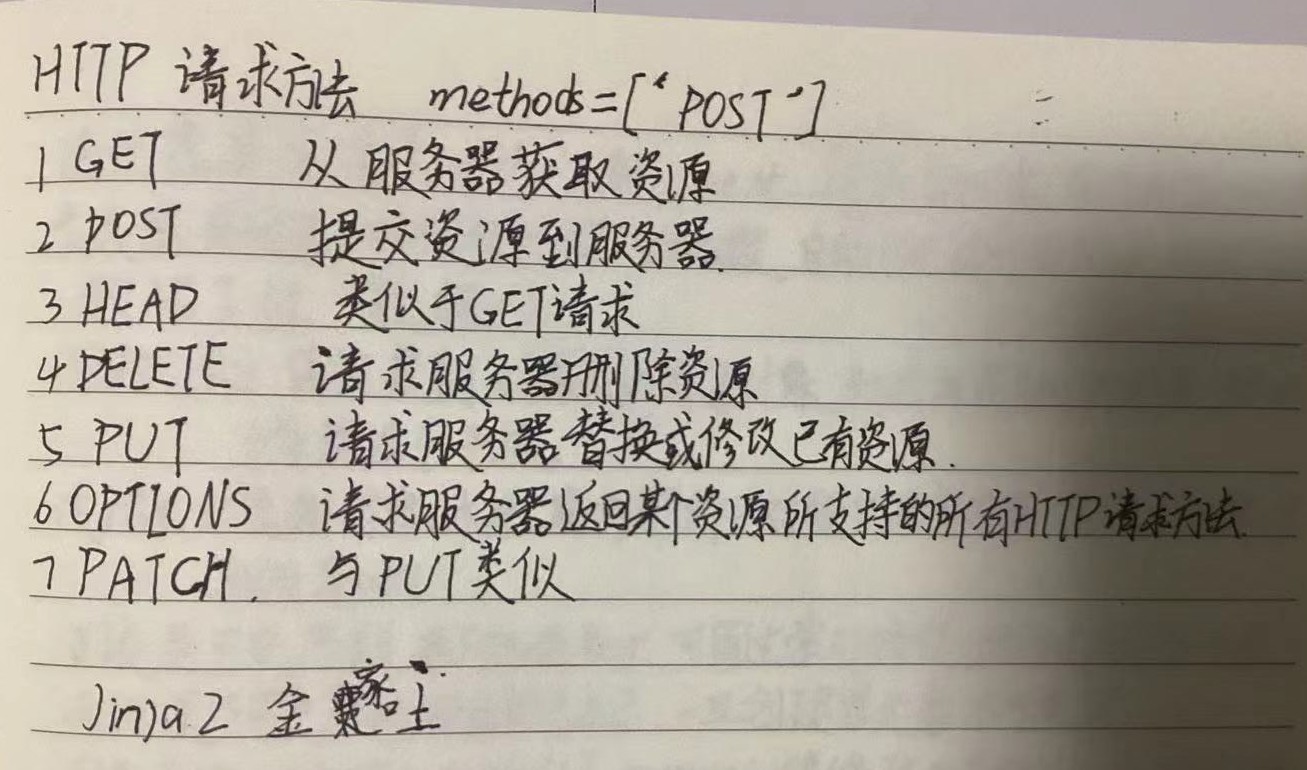 HTTP 请求方法 methods=["POST"]
1 GET 从服务器获取资源
2 POST 提交资源到服务器.
3 HEAD 类似于GET请求
4 DELETE 请求服务器删除资源
5 PUT 请求服务器替换或修改已有资源.
6 OPTIONS 请求服务器返回某个资源所支持的所有HTTP请求方法.
7 PATCH. 与PUT类似
Jinja2 金